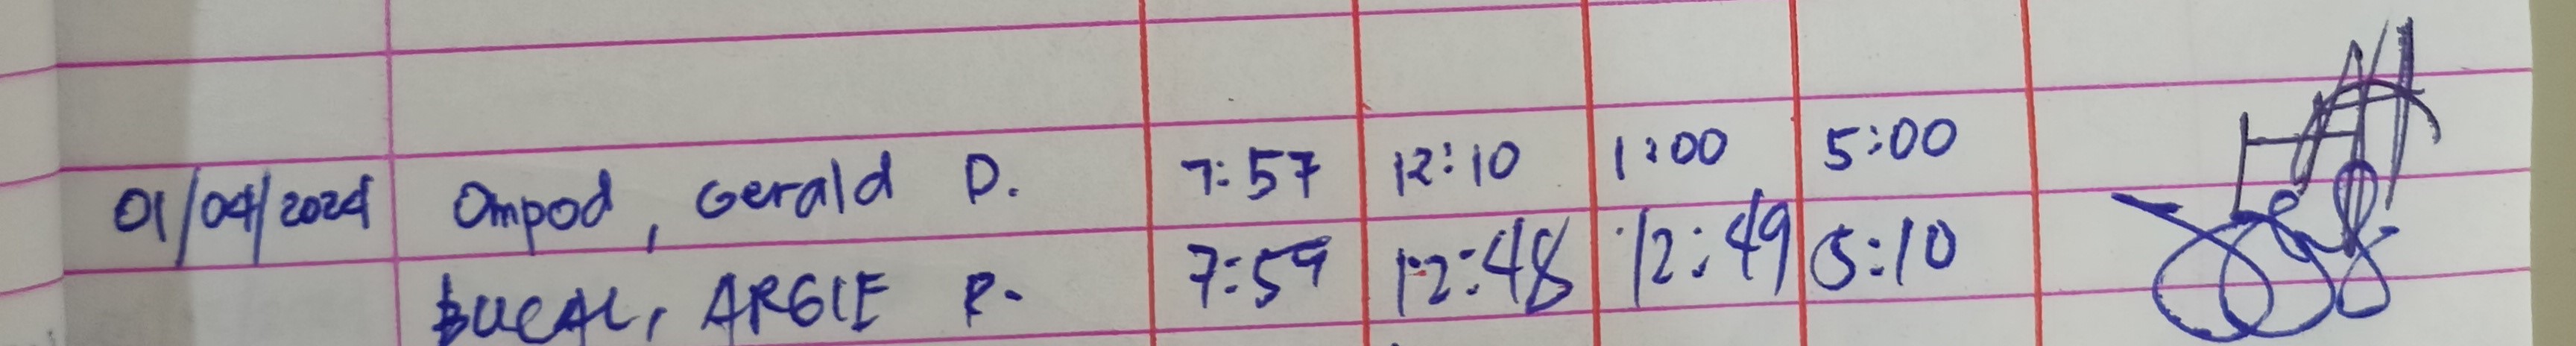 01/04/2024 Ompod, Gerald D. 7:57 12:10 1:00 5:00
BUCAL, ARGIE R. 7:59 12:48 12:49 5:10